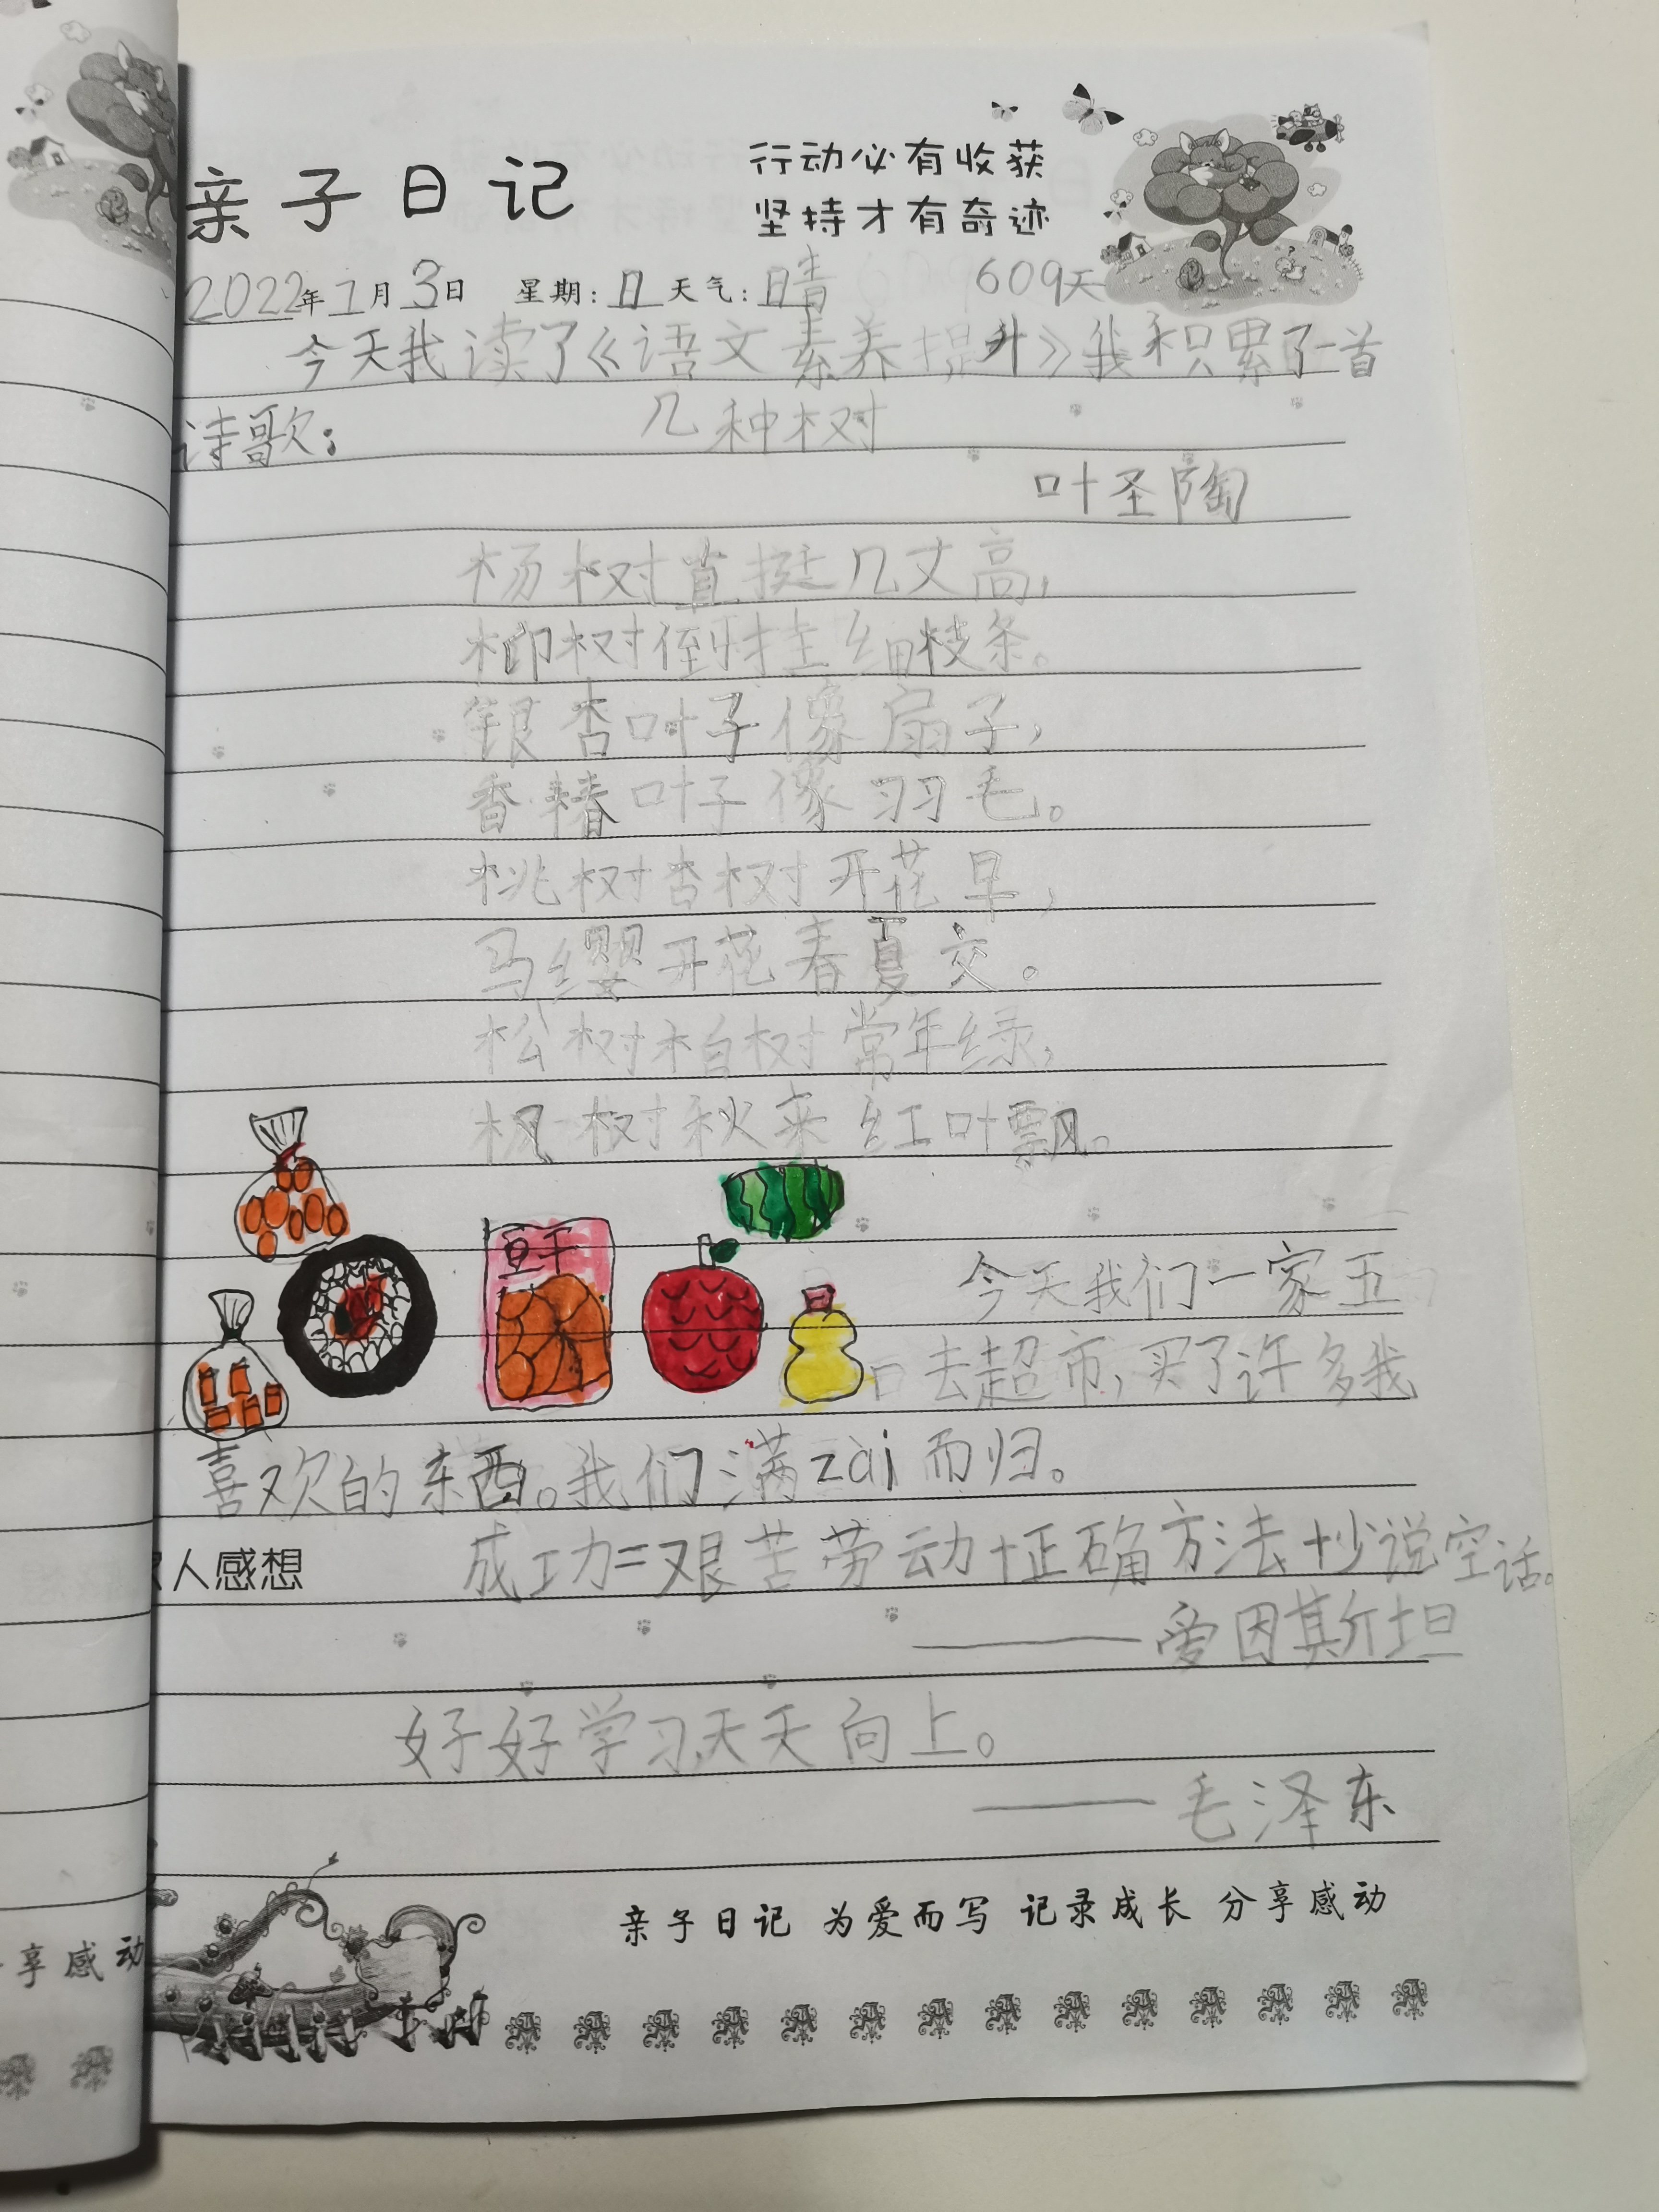 亲子日记
行动必有收获
坚持才有奇迹
2022年1月3日 星期:日 天气:晴 609天
今天我读了《语文素养提升》我积累了一首
诗歌:
几种树
叶圣陶
杨树直挺几丈高,
柳树倒挂细枝条。
银杏叶子像扇子,
香椿叶子像羽毛。
桃树杏树开花早,
马缨开花春夏交。
松树柏树常年绿,
枫树秋来红叶飘。
豆干
今天我们一家五
口去超市,买了许多我
喜欢的东西。我们满zai而归。
家人感想
成功=艰苦劳动+正确方法+少说空话。
——爱因斯坦
好好学习天天向上。
——毛泽东
亲子日记 为爱而写 记录成长 分享感动
享感动